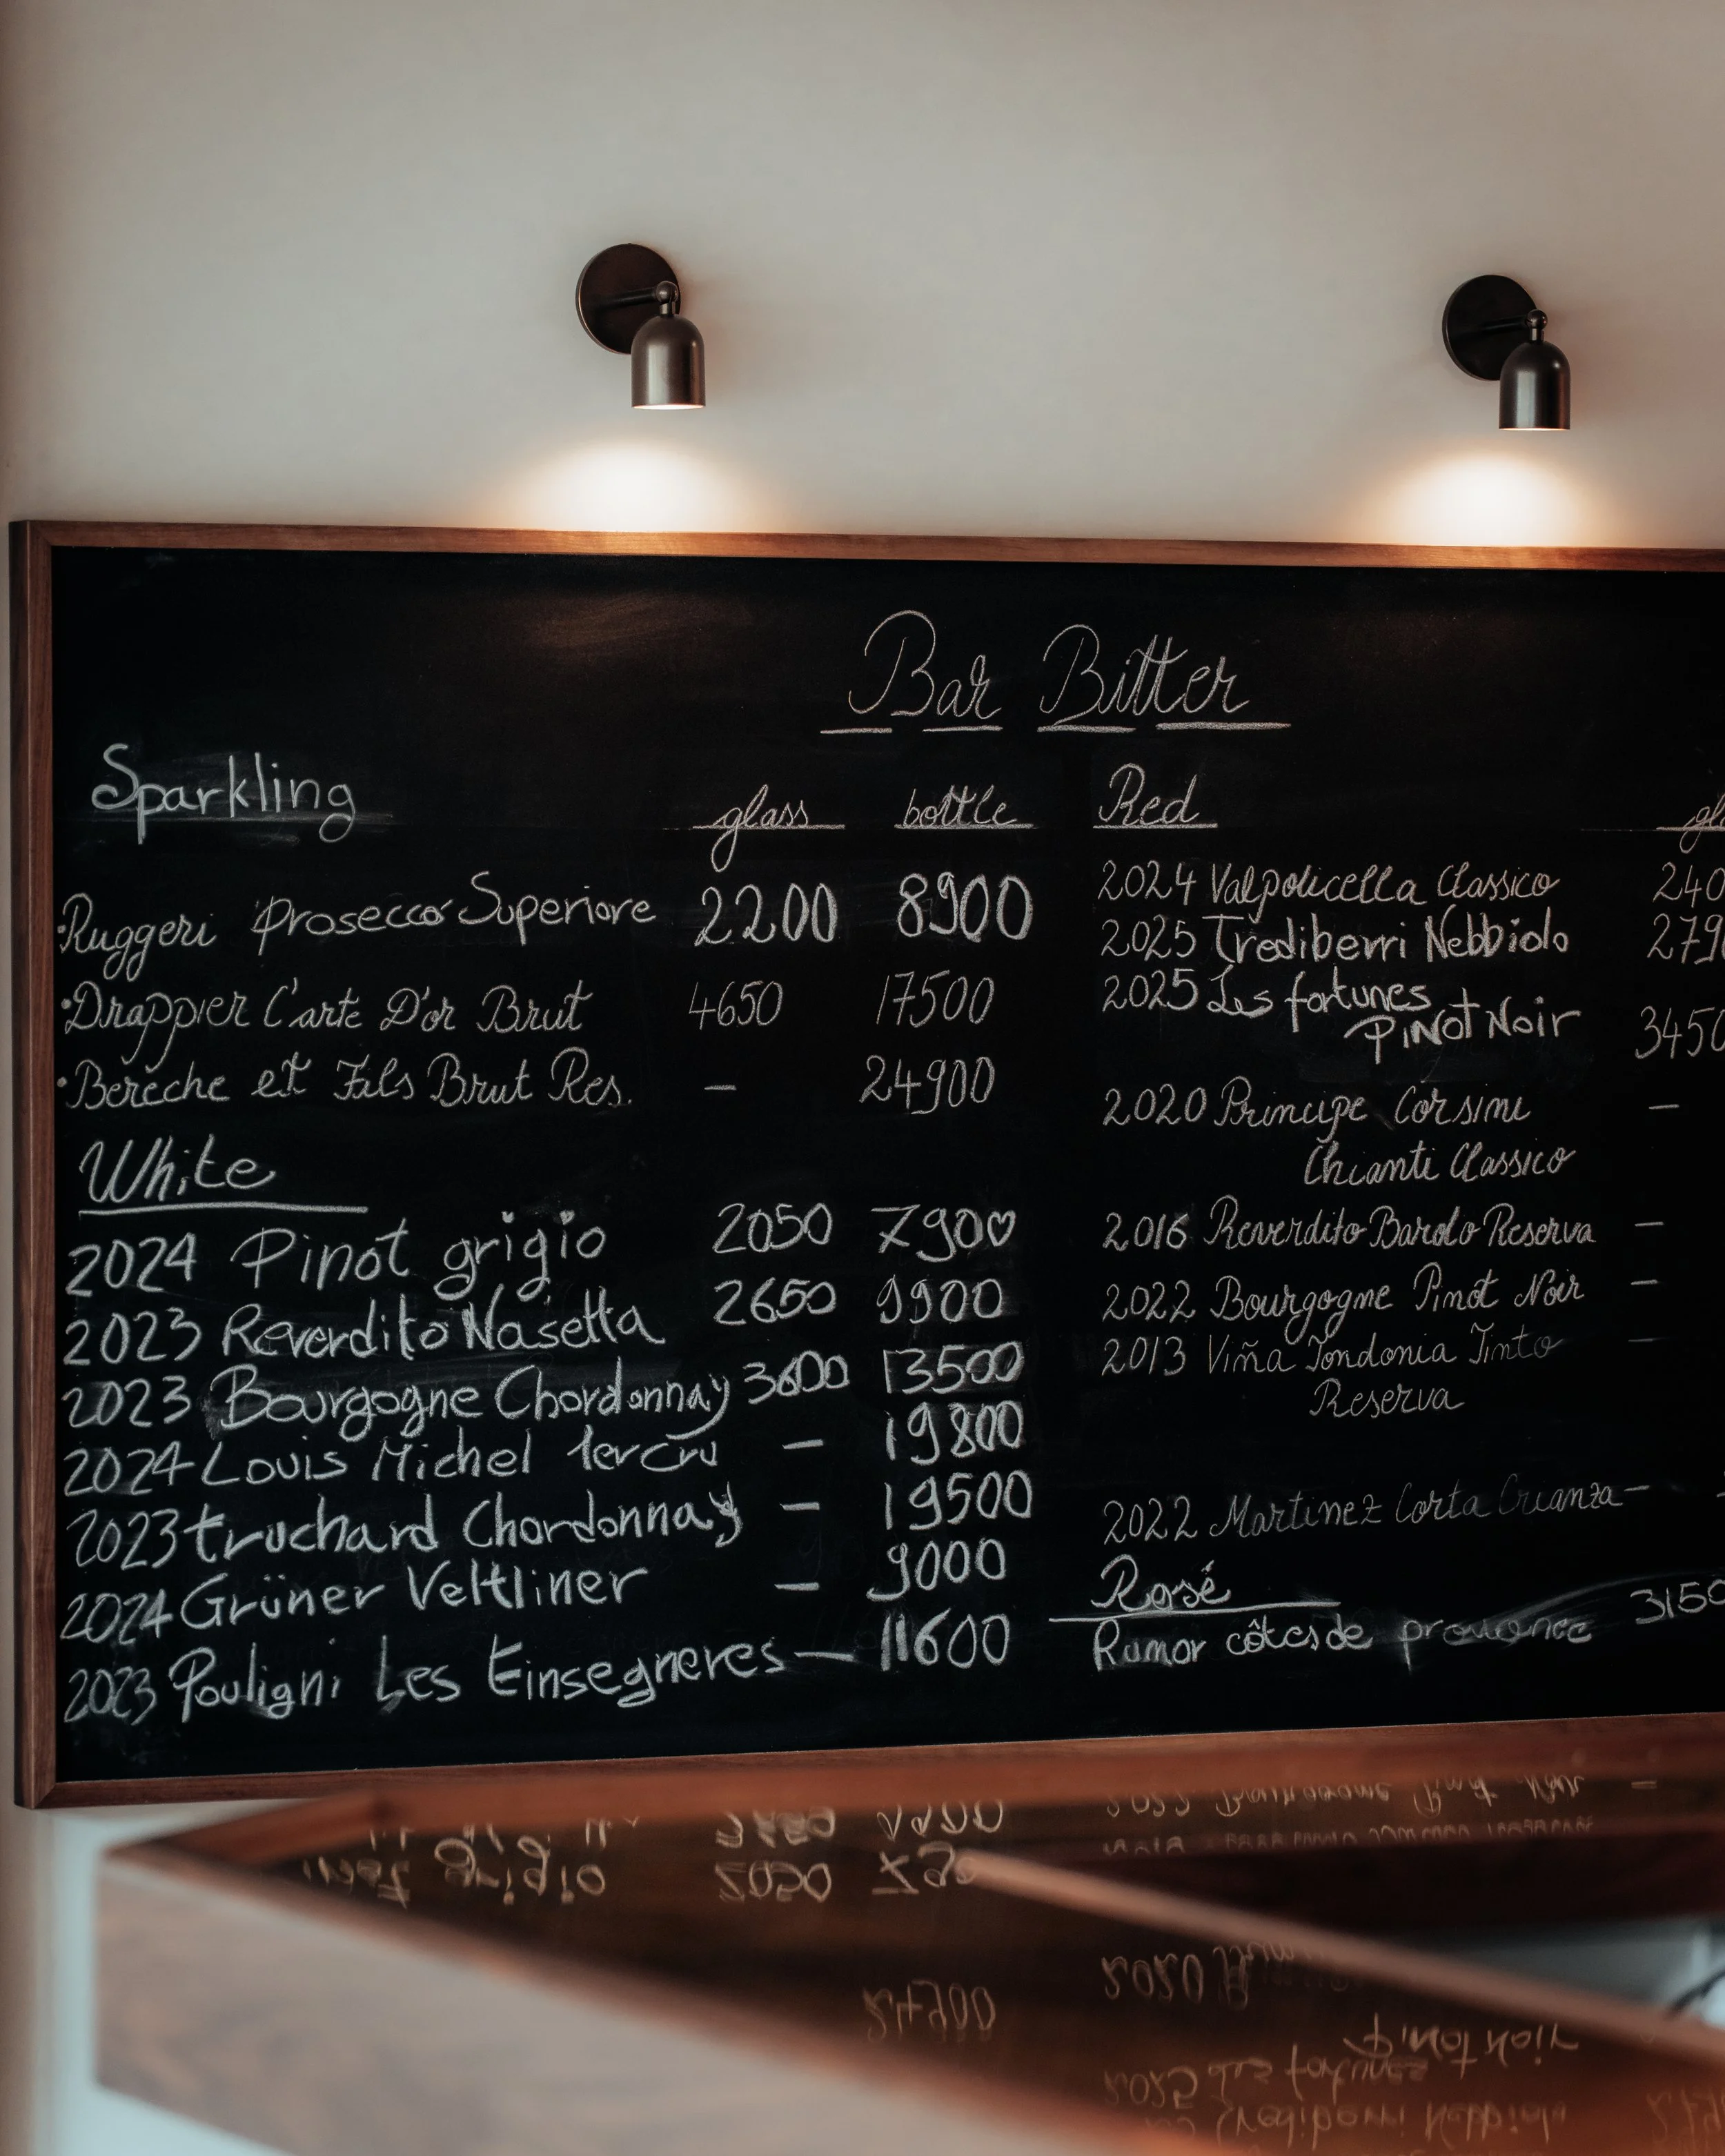 Bar Bitter
Sparkling glass bottle
·Ruggeri Prosecco Superiore 2200 8900
·Drappier Carte D'or Brut 4650 17500
·Bereche et Fils Brut Res. — 24900
White
2024 Pinot grigio 2050 7900
2023 Reverdito Nasetta 2650 9900
2023 Bourgogne Chordonnay 3600 13500
2024 Louis Michel 1er Cru — 19800
2023 truchard Chardonnay — 19500
2024 Grüner Veltliner — 9000
2023 Pouligni Les Einsegneres — 11600
Red gl
2024 Valpolicella Classico 240
2025 Trediberri Nebbiolo 279
2025 Les fortunes
Pinot Noir 3450
2020 Principe Corsini —
Chianti Classico
2016 Reverdito Barolo Reserva —
2022 Bourgogne Pinot Noir —
2013 Viña Tondonia Tinto —
Reserva
2022 Martinez Corta Crianza —
Rosé
Rumor côtes de provence 3150